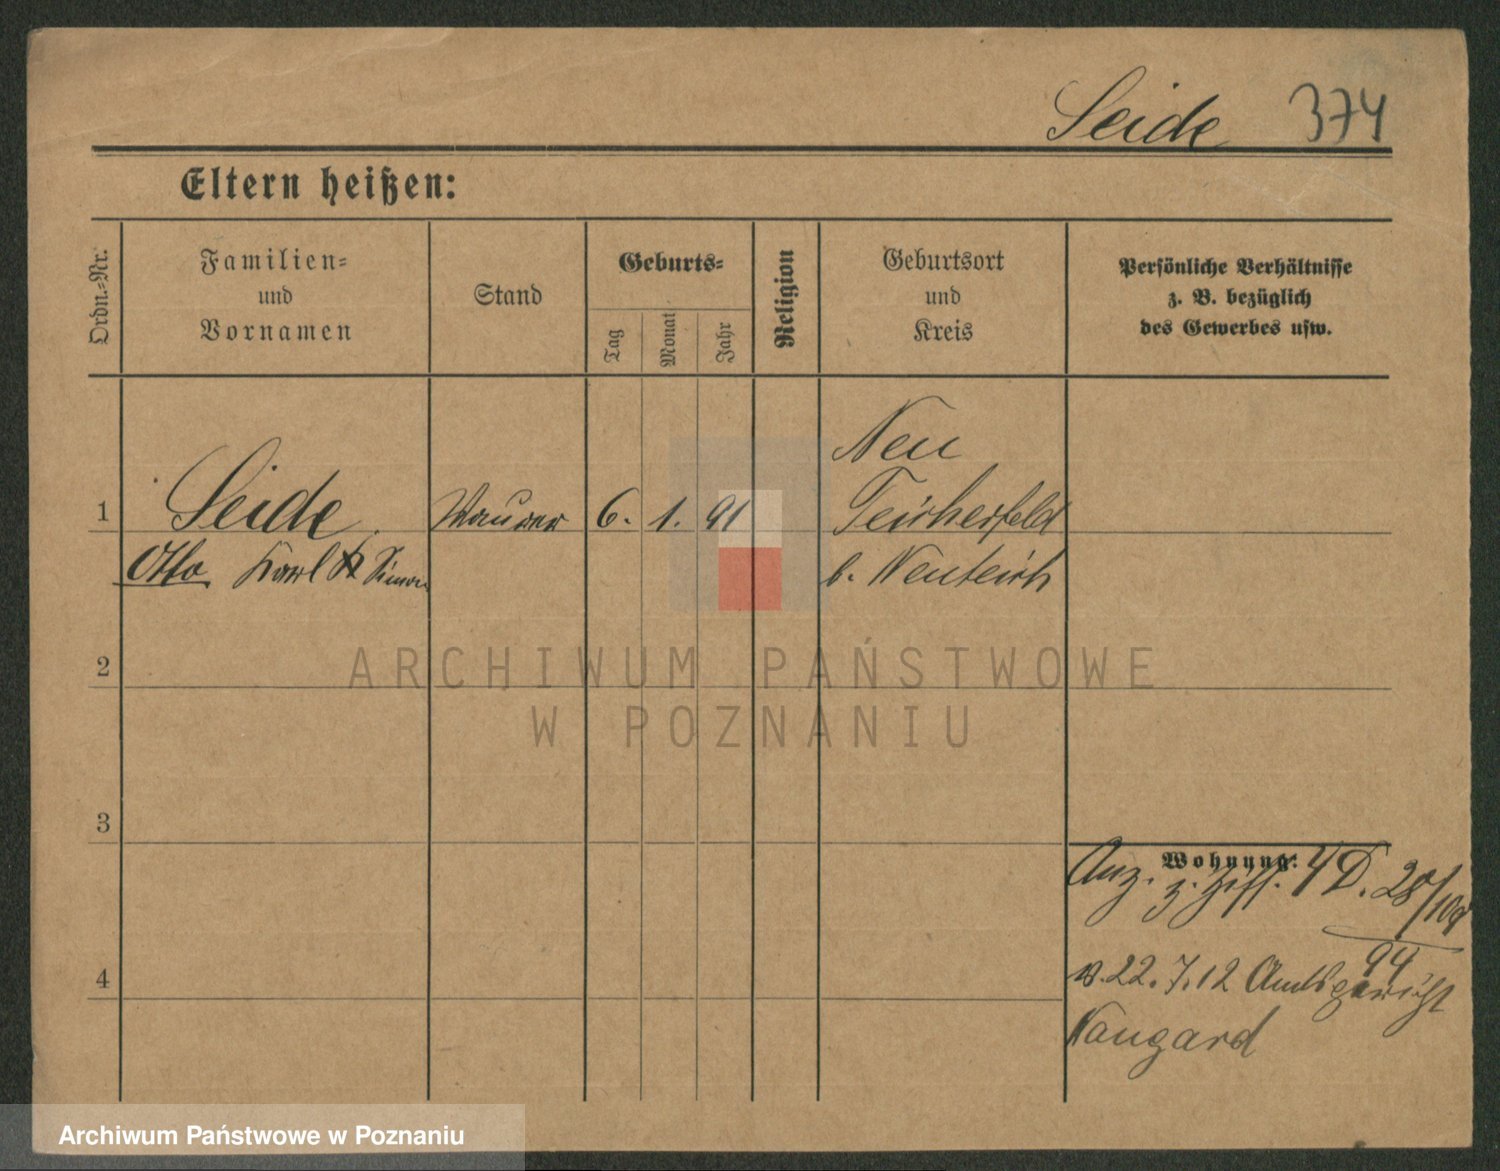 Seide 374
Eltern heißen:
Ordn.-Nr.
Familien-
und
Vornamen
Stand
Geburts-
Tag
Monat
Jahr
Religion
Geburtsort
und
Kreis
Persönliche Verhältnisse
z. B. bezüglich
des Gewerbes usw.
Neu
1 Seide Maurer 6. 1. 91 Teicherfeld
Otto Karl Simon b. Neuteich
2
ARCHIWUM PAŃSTWOWE
W POZNANIU
3
Wohnung:
Anz. z. Ziff. 4 D. 28/109
94
v. 22. 7. 12 Amtsgericht
4
Naugard
Archiwum Państwowe w Poznaniu